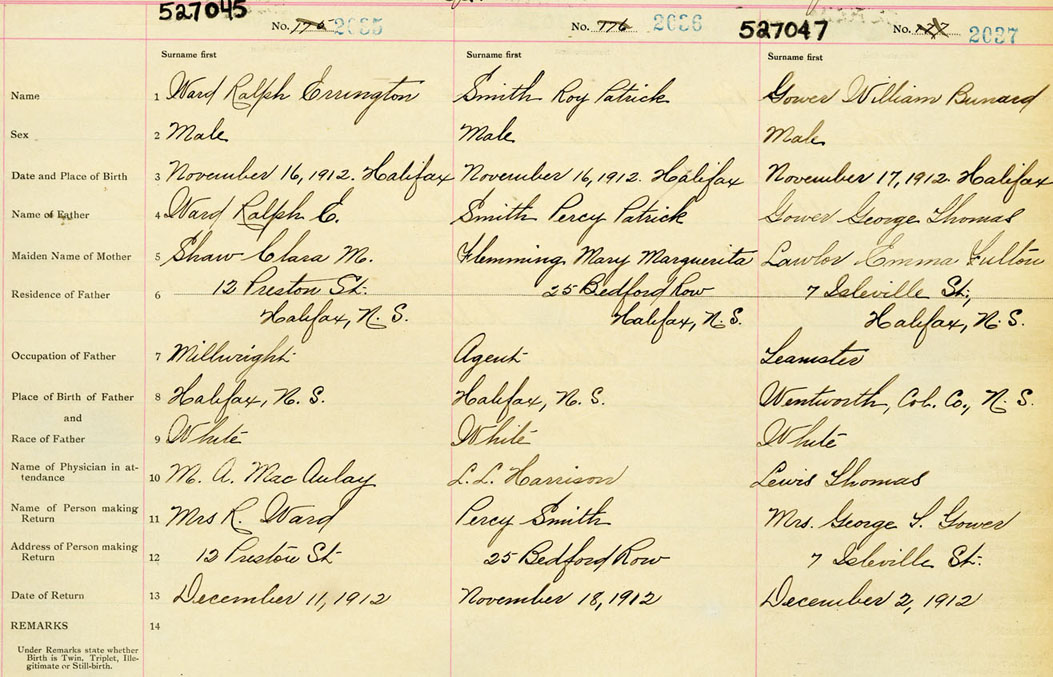 527045 527047
No. 2035 No. 776 2036 No. 2037
Surname first Surname first Surname first
Name 1 Ward Ralph Errington Smith Roy Patrick Gower William Bunard
Sex 2 Male Male Male
Date and Place of Birth 3 November 16, 1912. Halifax November 16, 1912. Halifax November 17, 1912. Halifax
Name of Father 4 Ward Ralph E. Smith Percy Patrick Gower George Thomas
Maiden Name of Mother 5 Shaw Clara M. Flemming Mary Marguerita Lawlor Emma Fulton
Residence of Father 6 12 Preston St. 25 Bedford Row 7 Isleville St.,
Halifax, N. S. Halifax, N. S. Halifax, N. S.
Occupation of Father 7 Millwright Agent Teamster
Place of Birth of Father 8 Halifax, N. S. Halifax, N. S. Wentworth, Col. Co., N. S.
and
Race of Father 9 White White White
Name of Physician in at-
tendance 10 M. A. MacAulay L. L. Harrison Lewis Thomas
Name of Person making
Return 11 Mrs R. Ward Percy Smith Mrs. George T. Gower
Address of Person making
Return 12 12 Preston St. 25 Bedford Row 7 Isleville St.
Date of Return 13 December 11, 1912 November 18, 1912 December 2, 1912
REMARKS 14
Under Remarks state whether
Birth is Twin, Triplet, Ille-
gitimate or Still-birth.